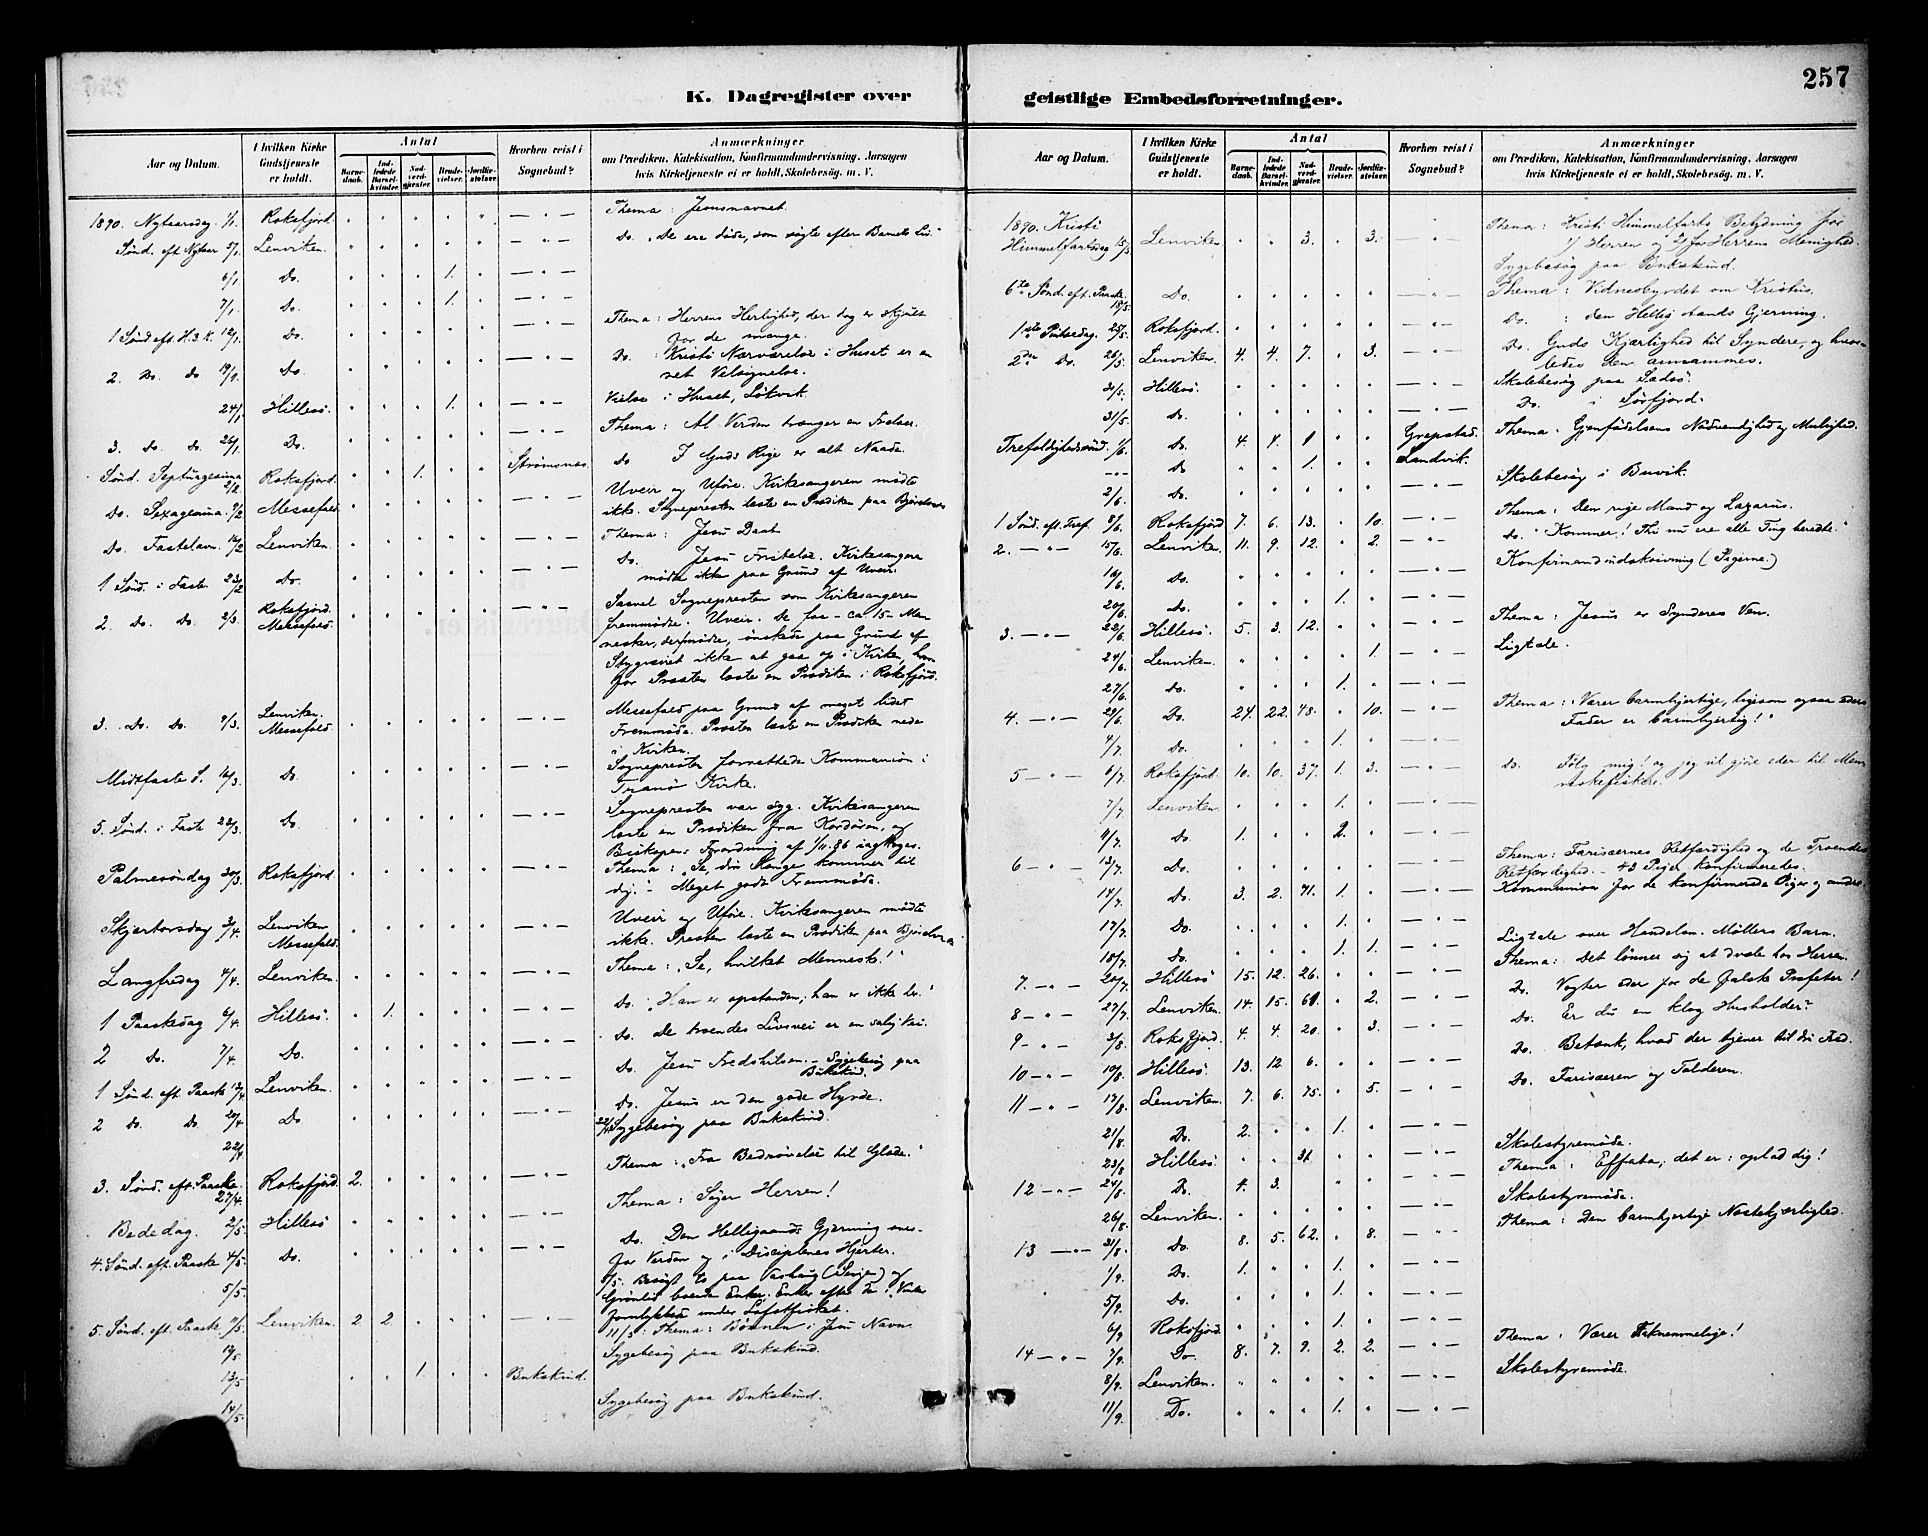 257
K. Dagregister over geistlige Embedsforretninger.
Aar og Datum. I hvilken Kirke Gudstjeneste er holdt. Antal Barnedaab. Indledede Barselkvinder. Nadverdgjester. Brudevielser. Jordfæstelser. Hvorhen reist i Sognebud? Anmærkninger om Prædiken, Katekisation, Konfirmandundervisning, Aarsagen hvis Kirketjeneste ei er holdt, Skolebesøg, m. V.
1890. Nytaarsdag. 1/1. Roksfjord. Thema: Jesusnavnet.
Sønd. eft. Nytaar 5/1. Lenviken. Do. "De ere døde, som søgte efter Barnets Liv."
6/1 Do. 1.
7/1. Do. 1.
1 Sønd. eft. H.3.K. 12/1. Do. Thema: Herrens Herlighed, der dog er skjult
for de mange.
2. Do. Do 19/1. Do. Do. Kristi Nærværelse i Huset er en
ret Velsignelse.
24/1 Hillesø. 1. Vielse i Huset, Løkvik.
3. Do. Do. 26/1. Do. Thema: Al Verden trænger en Frelser.
Sønd. Septuagesima 2/2 Roksfjord. 1. Strømsnes. Do I Guds Rige er alt Naade.
Do. Sexagesima 9/2 Messefald. Uveir og Uføre. Kirkesangeren mødte
ikke. Sognepresten læste en Prædiken paa
Do. Fastelavn. 16/2 Lenviken. Thema: Jesu Daab
1 Sønd. i Faste 23/2 Do. Do. Jesu Fristelse. Kirkesangeren
mødte ikke paa Grund af Uveir.
2. Do. Do. 2/3. Roksfjord. Messefald. Saavel Sognepresten som Kirkesangeren
fremmødte. Uveir. De faa - ca 15 - Mennesker,
der mødte, ønskede paa Grund af
ikke at gaa op i Kirken, hvorfor
Præsten læste en Prædiken i Roksfjord.
3. Do. Do. 9/3. Lenviken. Messefald. Messefald paa Grund af meget lidet
Fremmøde. Præsten læste en Prædiken nede
i Kirken.
Midtfaste S. 16/3. Do. Sognepresten forrettede Kommunion i
Tranø Kirke.
5. Sønd. i Faste 23/3. Do. Sognepresten var syg. Kirkesangeren
læste en Prædiken fra Kordøren, og
Biskopens Forordning af 1/11.86 iagttoges.
Palmesøndag 30/3. Roksfjord. Thema: "Se, din Konge kommer til
dig." - Meget godt Fremmøde.
Skjærtorsdag 3/4. Lenviken Messefald. Uveir og Uføre. Kirkesangeren mødte
ikke. Presten læste en Prædiken paa
Langfredag 4/4. Lenviken. Thema: "Se, hvilket Menneske!"
1 Paaskedag 6/4. Hillesø. 1. Do. "Han er opstanden; han er ikke her."
2 Do. 7/4. Do. Do. De troendes Livsvei er en salig Vei.
1 Sønd. eft. Paaske 13/4 Lenviken. Do. Jesu Fredshilsen. - Sygebesøg paa
Bukskind.
2 Do. Do. 20/4 Do Do. Jesus er den gode Hyrde.
22/4 22/4 Sygebesøg paa Bukskind.
3. Sønd. eft. Paaske. 27/4. Roksfjord 2. Thema: "Fra Bedrøvelse til Glæde."
Bededag. 2/5. Hillesø Thema: Søger Herren!
4. Sønd. eft. Paaske 4/5. Do. Do. Den Helligaands Gjerning
for Verden og i Disciplenes Hjerter.
5/5. 5/5. Besøgt to paa Vashaug (Senjen) og
Grønlid boende Enker. Enker efter de i Vinter
forulykkede under Lofotfisket.
5. Sønd. eft. Paaske Lenviken. 2 2. 11/5: Thema: Bønnen i Jesu Navn.
12/5 Sygebesøg paa Bukskind.
13/5 1. Bukskind.
14/5. Sygebesøg paa Bukskind.
Aar og Datum. I hvilken Kirke Gudstjeneste er holdt. Antal Barnedaab. Indledede Barselkvinder. Nadverdgjester. Brudevielser. Jordfæstelser. Hvorhen reist i Sognebud? Anmærkninger om Prædiken, Katekisation, Konfirmandundervisning, Aarsagen hvis Kirketjeneste ei er holdt, Skolebesøg, m. V.
1890. Kristi Thema: Kristi Himmelfarts Betydning for
Himmelfartsdag 15/5 Lenviken. 3. 3. 1/ Herren og 2/ for Herrens Menighed.
Sygebesøg paa Bukskind.
6te Sønd. eft. Paaske. 18/5. Do. Thema: Vidnesbyrdet om Kristus.
1ste Pintsedag. 25/5. Roksfjord. Do. : den Hellig Aands Gjerning.
2den Do. 26/5. Lenviken. 4. 4. 7. 3. Do. Guds Kjærlighed til Syndere, og hvorledes
den annammes.
30/5. Hillesø. Skolebesøg paa Sædsø.
31/5. Do. Do. i Sørfjord.
Trefoldighedssønd. 1/6. Do. 4. 4. 1 Grepstad. Thema. Gjenfødelsens Nødvendighed og Mulighed.
Do 1. Landvik.
2/6. Do. Skolebesøg i Buvik.
1 Sønd. eft. Tref. 8/6. Roksfjord 7. 6. 13. 10. Thema: Den rige Mand og Lazarus.
2. 15/6. Lenviken. 11. 9. 12. 2. do. "Kommer! Thi nu ere alle Ting beredte."
16/6. Do. Konfirmandudskrivning (Pigerne.)
20/6 Do. 1.
3. 22/6. Hillesø. 5. 3. 12. Thema: Jesus er Synderes Ven.
24/6. Lenviken. 1. Ligtale.
27/6. Do. 1.
4. 29/6. Do. 24. 22. 48. 10. Thema: "Værer barmhjertige, ligesom ogsaa eders
Fader er barmhjertig!"
4/7. Do. 1.
5 6/7. Roksfjord. 10. 10. 37. 1. 3. Do. Følg mig! og jeg vil gjøre eder til Menneskefiskere.
7/7. Lenviken. 1.
9/7. Do 1. 2.
6 13/7. Do. Thema: Farisæernes Retfærdighed og de Troendes
Retfærdighed. - 43 Piger konfirmeredes.
14/7. Do 3. 2. 71. 1. Kommunion for de konfirmerede Piger og andre.
17/7. Do. 1.
18/7. Do. 1. 1. Ligtale over Handelsm. Møllers Barn.
7. 20/7. Hillesø 15. 12. 26. Thema: Det lønner sig at dvæle hos Herren.
8 27/7. Lenviken. 14. 15. 61. 2. Do. Vogter eder for de falske Profeter!
9 3/8. Roksfjord. 4. 4. 20. 3. Do. Er du en klog Husholder?
10 10/8. Hillesø. 13. 12 6. Do. Betænk, hvad der tjener til din Fred.
11 17/8. Lenviken. 7. 6. 75. 5. Do. Farisæeren og Tolderen.
21/8. Do. 2. 1.
23/8 Hillesø. 31. Skolestyremøde.
12 24/8. Do. 4. 3. Thema: Effata; det er: oplad dig!
26/8. Lenviken. Skolestyremøde.
13 31/8. Do. 8. 5. 62. 8. Thema: Den barmhjertige Næstekjærlighed.
1/9. Do. 1. 1.
5/9. Do. 1.
6/9 Roksfjord. 1.
14 7/9. Do. 8. 7. 9. 2. 2. Thema: Værer taknemmelige!
8/9. Lenviken. Skolestyremøde.
11/9. Do. 1.